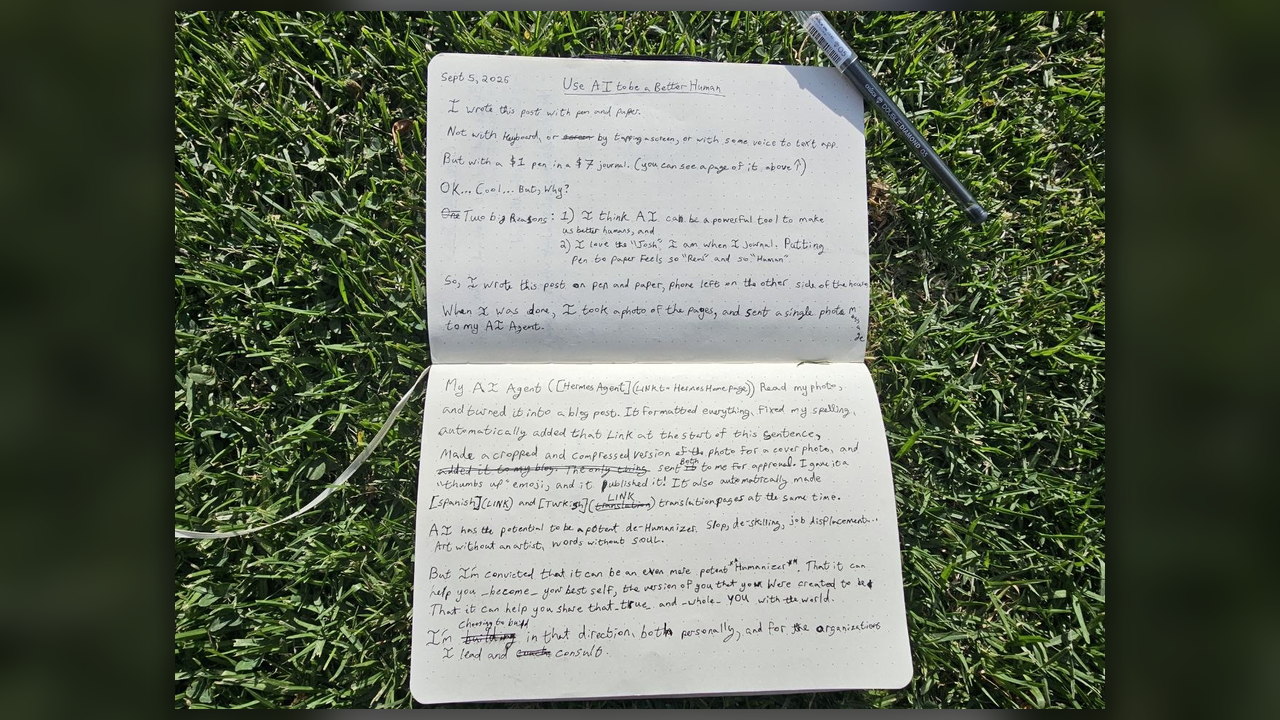 Sept 5, 2026
Use AI to be a Better Human
I wrote this post with pen and paper.
Not with keyboard, or screen by tapping a screen, or with some voice to text app.
But with a $1 pen in a $7 journal. (you can see a page of it above ↑)
OK... Cool... But, Why?
One Two big Reasons: 1) I think AI can be a powerful tool to make
us better humans, and
2) I love the "Josh" I am when I journal. Putting
pen to paper feels so "Real" and so "Human"
So, I wrote this post on pen and paper, phone left on the other side of the house
When I was done, I took a photo of the pages, and sent a single photo
to my AI Agent.
My AI Agent ([Hermes Agent](LINK to Hermes Home page)) Read my photo,
and turned it into a blog post. It formatted everything, fixed my spelling,
automatically added that Link at the start of this sentence,
Made a cropped and compressed version of the photo for a cover photo, and
added it to my blog. The only thing sent Both to me for approval. I gave it a
"thumbs up" emoji, and it published it! It also automatically made
[Spanish](LINK) and [Turkish](translation LINK) translation pages at the same time.
AI has the potential to be a potent de-Humanizer. Slop, de-skilling, job displacement...
Art without an artist, words without SOUL.
But I'm convicted that it can be an even more potent *Humanizer*. That it can
help you _become_ your best self, the version of you that you were created to be
That it can help you share that true and _whole_ YOU with the world.
I'm building choosing to build in that direction, both personally, and for the organizations
I lead and coach consult.